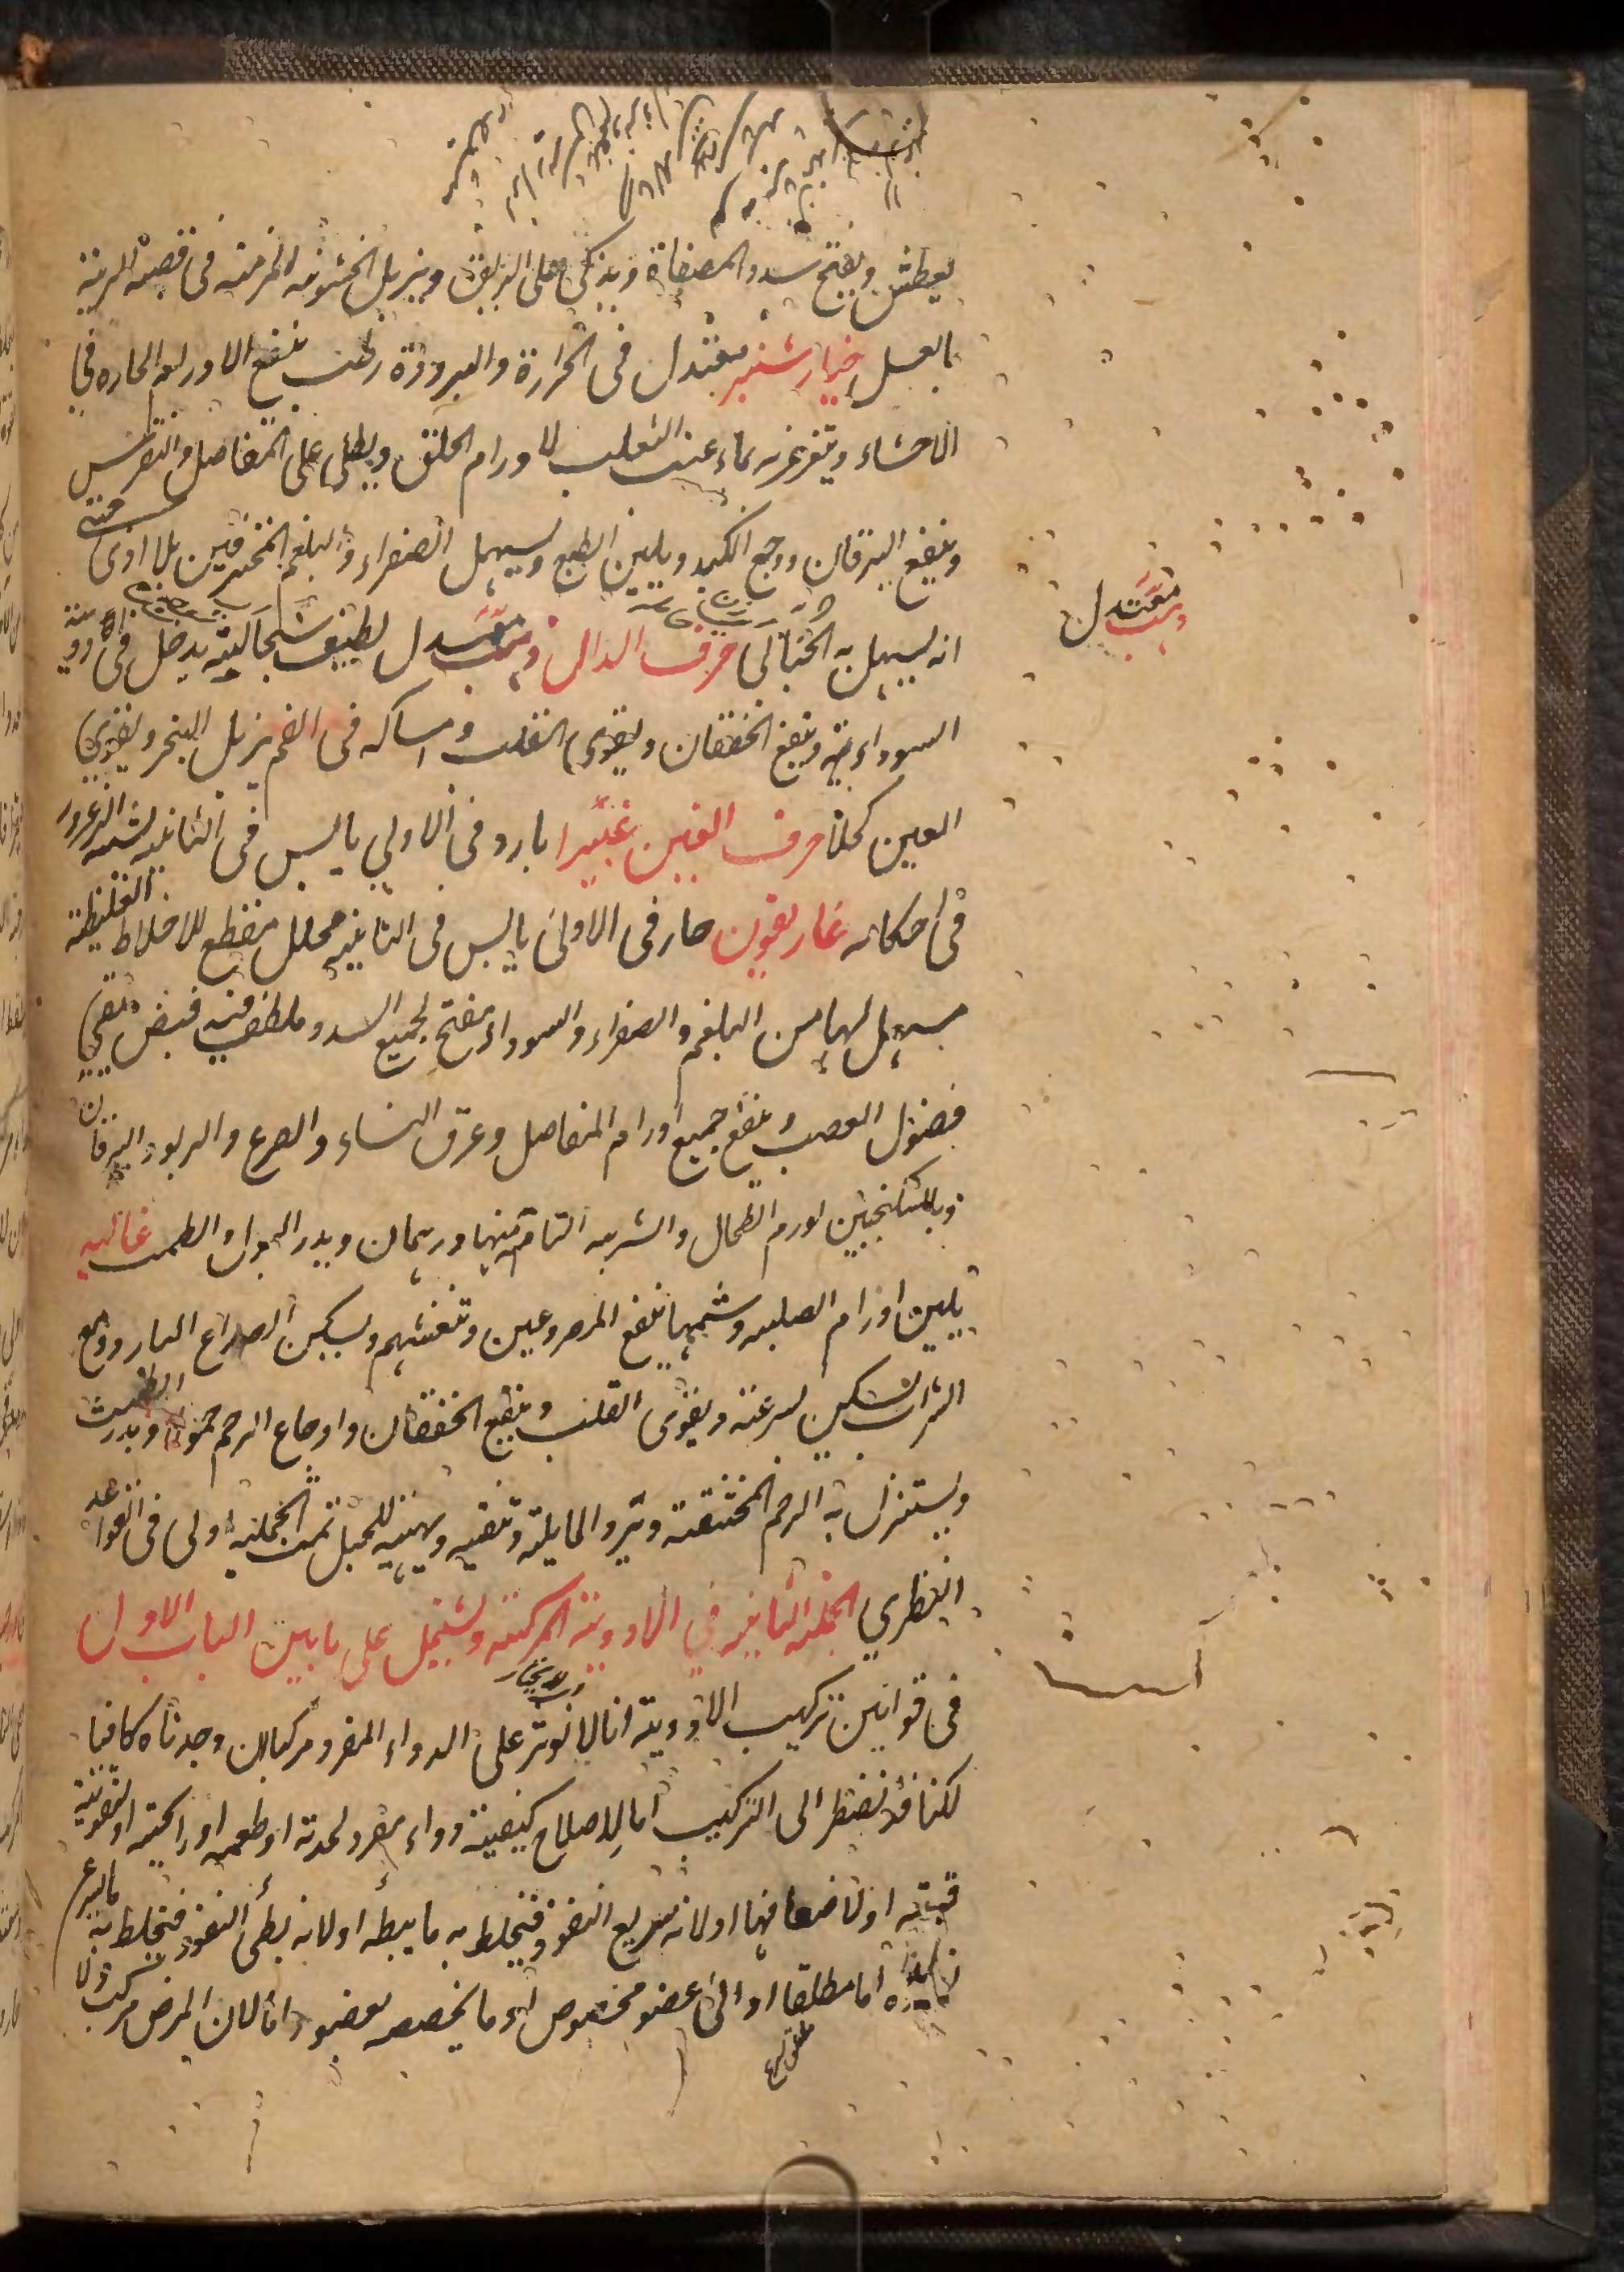 يعطش ويفتح سدد المصفاة ويذكى على الريق ويزيل الخشونه المزمنه فى قصبه الرية
بالعسل خيار شنبر معتدل فى الحرارة والبرودة رطب ينفع الاورام الحاره فى
الاحشاء ويتغرغر بماء عنب الثعلب لاورام الحلق ويطلى على المفاصل والنقرس
وينفع اليرقان ووجع الكبد ويلين الطبع ويسهل الصفراء والبلغم المحترقين بلا اذى حتى
انه يسهل به الحبالى حرف الذال ذهب معتدل لطيف سحالته يدخل فى ادوية
السوداء وينفع الخفقان ويقوى القلب وامساكه فى الفم يزيل البخر ويقوى
العين كحلا حرف الغين غبيرا بارد فى الاولى يابس فى الثانيه يشبه الزعرور
فى احكامه غاريقون حار فى الاولى يابس فى الثانيه محلل مقطع للاخلاط الغليظة
مسهل لها من البلغم والصفراء والسوداء مفتح لجميع السدد ملطف فيه قبض ينقى
فضول العصب وينفع جميع اورام المفاصل وعرق النساء والصرع والربو واليرقان
وبالسكنجبين لورم الطحال والشربه التامة منها درهمان ويدر البول والطمث غاليه
يلين اورام الصلبه وشمها ينفع المصروعين وتنعشهم ويسكن الصداع البارد ومع
الشراب يسكن بسرعة ويقوى القلب وينفع الخفقان واوجاع الرحم حمولا ويدر الطمث
ويستنزل به الرحم المختنقة وترد المايلة وتنقيه ويهيئه للحبل تمت الجملة الاولى فى القواعد
النظري الجملة الثانيه فى الادوية المركبة وتشتمل على بابين الباب الاول
فى قوانين تركيب الادوية انا لا نوثر على الدواء المفرد مركبا ان وجدناه كافيا
لكنا قد نضطر الى التركيب اما لاصلاح كيفية دواء مفرد لحدته او طعمه او رايحته او لتقوية
قوته او لاضعافها او لانه سريع النفوذ فيخلط به ما يبطه او لانه بطئ النفوذ فيخلط به ما يسرع
نفوذه اما مطلقا او الى عضو مخصوص او ما يخصصه بعضو واما لان المرض مركب ولا
ذهب معتدل